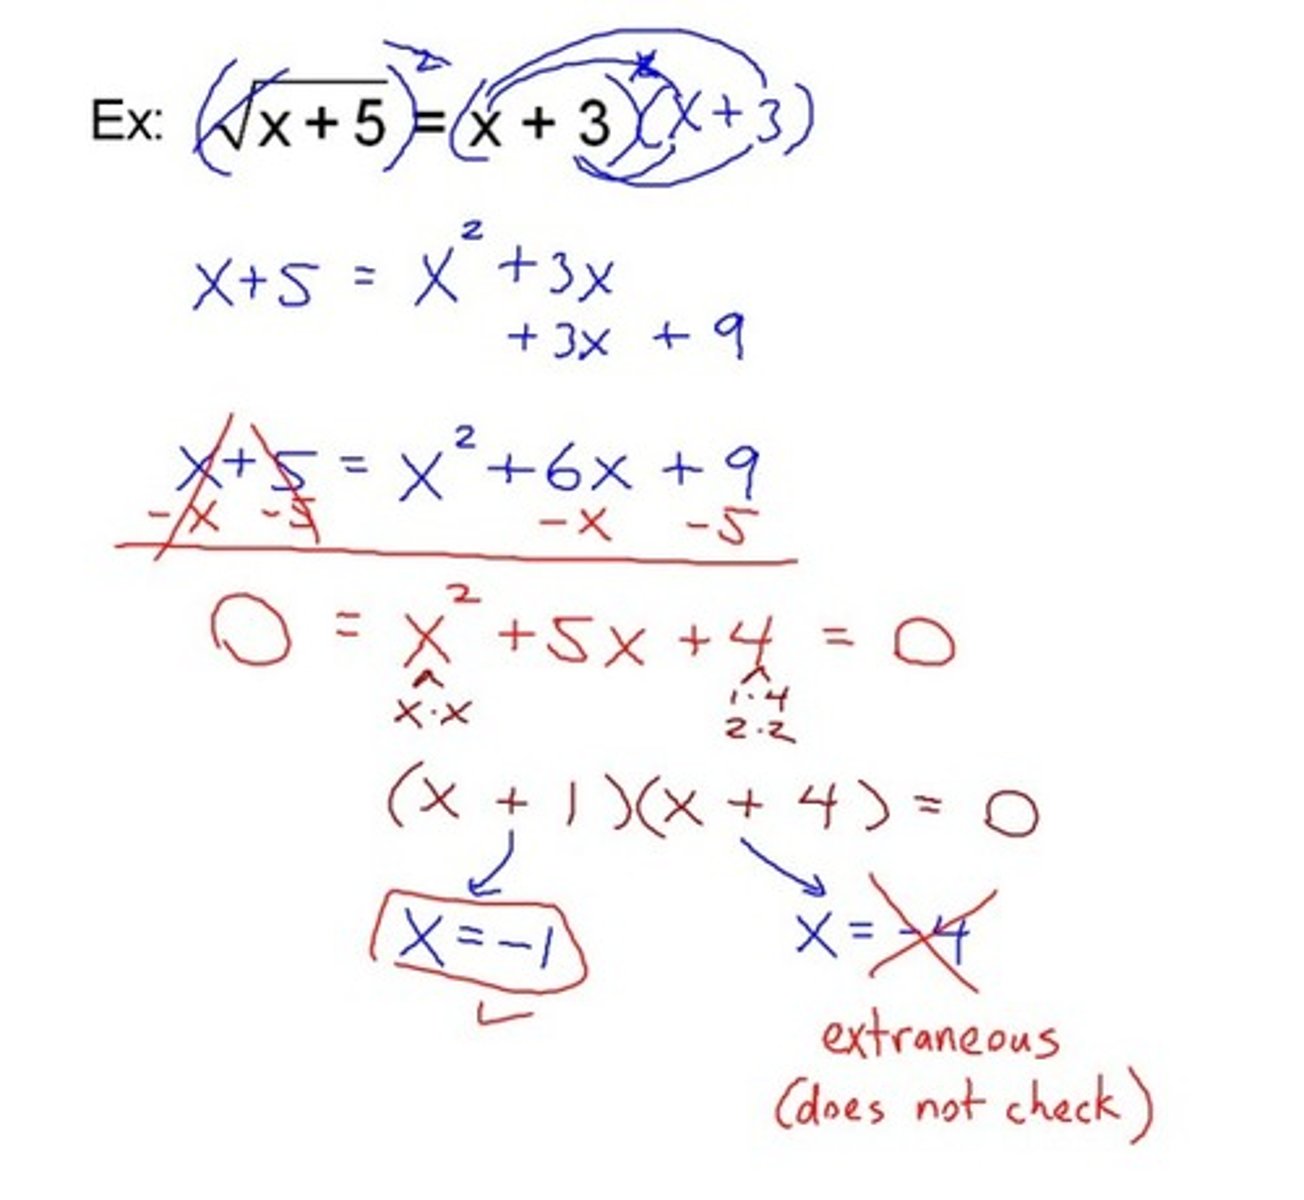 Ex: (√x + 5)² = (x + 3)(x + 3)
x + 5 = x² + 3x
+ 3x + 9
x + 5 = x² + 6x + 9
- x - 5 - x - 5
0 = x² + 5x + 4 = 0
x · x 1 · 4
2 · 2
(x + 1)(x + 4) = 0
x = -1 x = -4
extraneous
(does not check)